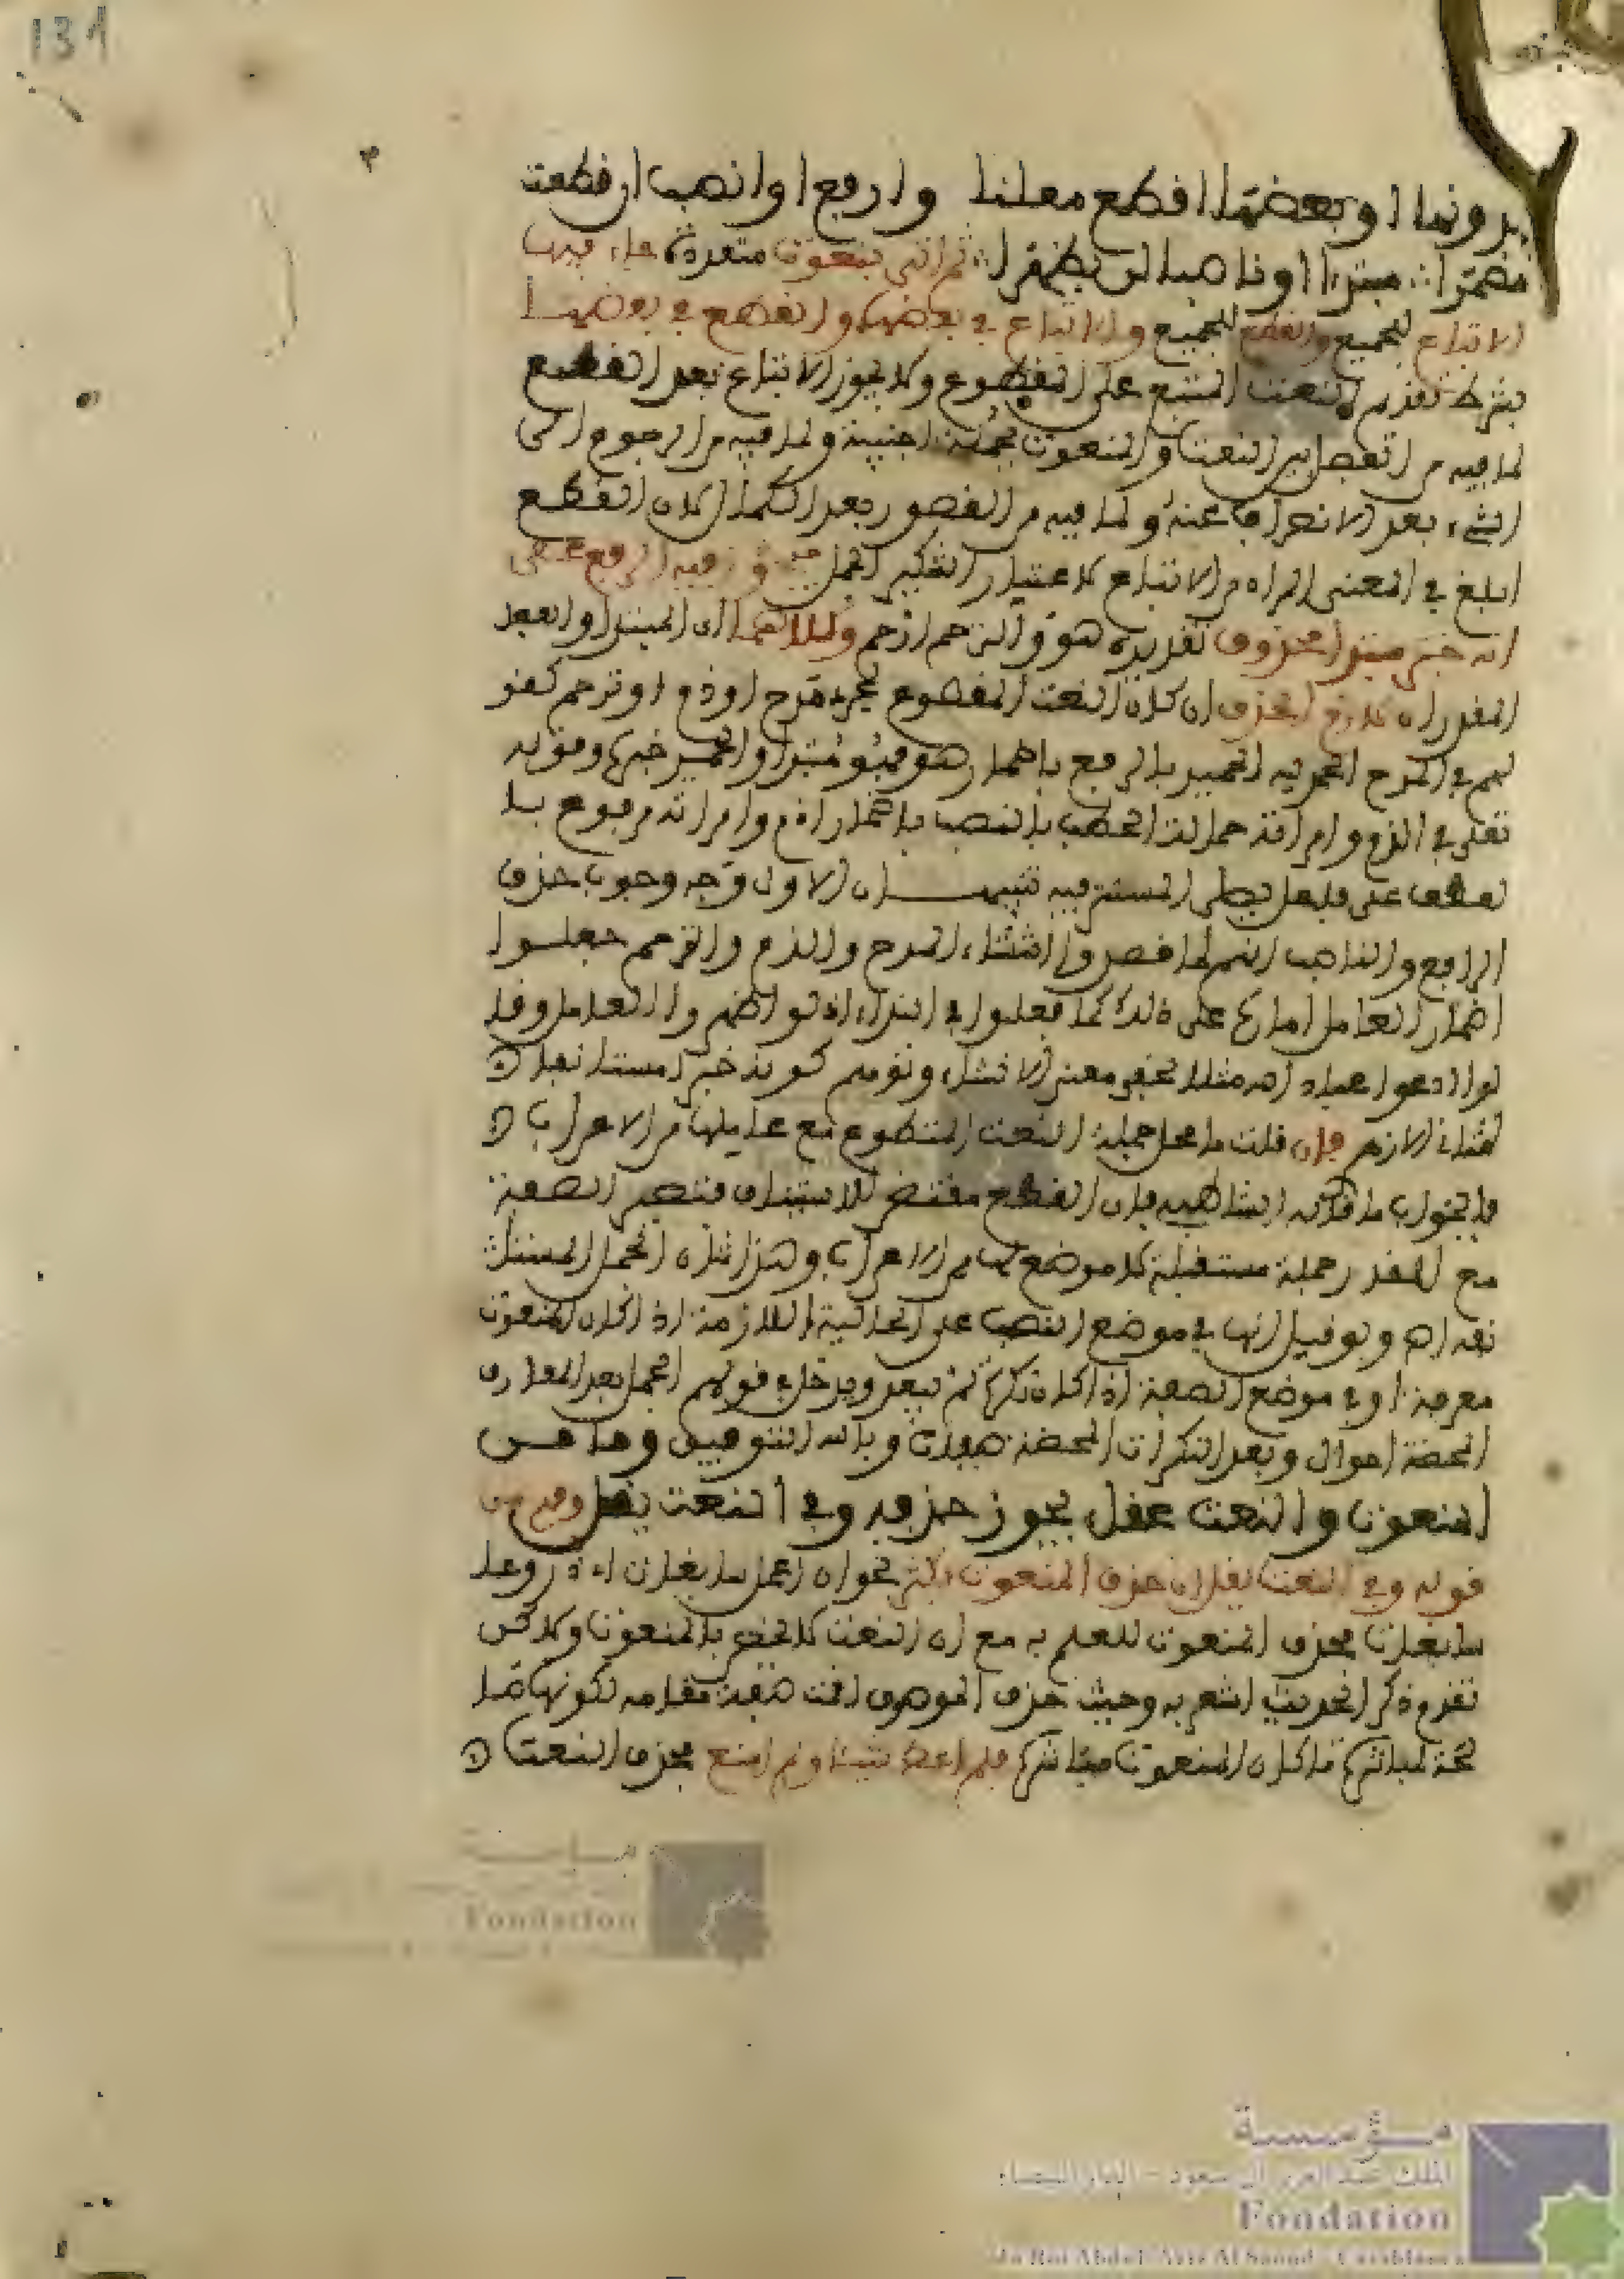 131
بدونها او بعضها اقطع معلنا وارفع او انصب ان قطعت
مضمرا مبتدا او ناصبا لن يظهرا ثم اتى بنعوت متعددة جاء فيها
الاتباع للجميع والقطع للجميع والاتباع في بعضها والقطع في بعضها
بشرط تقديم النعت المتبع على المقطوع ولا يجوز الاتباع بعد القطع
لما فيه من الفصل بين النعت والمنعوت بجملة اجنبية ولما فيه من الرجوع الى
الشيء بعد الانصراف عنه ولما فيه من القصور بعد الكمال لان القطع
ابلغ في المعنى المراد من الاتباع لاعتبار تكثير الجمل وفيه الرفع على
انه خبر مبتدا محذوف تقديره هو والترحم ارحم وكلاهما اي المبتدا والفعل
المقدران لازم الحذف ان كان النعت المقطوع لمجرد مدح او ذم او ترحم كقو
لهم في المدح الحمد لله الحميد بالرفع باضمار هو فهو مبتدا والحميد خبره وقوله
تعلى في الذم وامراته حمالة الحطب بالنصب باضمار اذم وامراته مرفوع بـا
لعطف على فاعل يصلى المستتر فيه تنبيهـان الاول وجه وجوب حذف
الرافع والناصب انهم لما قصدوا انشاء المدح والذم والترحم جعلوا
اضمار العامل امارة على ذلك كما فعلوا في النداء اذ لو اظهروا العامل وقا
لوا ادعوا عباد الله مثلا لخفي معنى الانشاء وتوهم كونه خبرا مستانفا
لثناء الازهر فان قلت ما محل جملة النعت المقطوع مع عاملها من الاعراب
فالجواب ما قاله الشاطبي فان القطع مقتض للاستيناف فتصير الصفة
مع المقدر جملة مستقبلة لا موضع لها من الاعراب وهذا شان الجمل المستانـ
نفة اه ولو قيل انها في موضع النصب على الحالية اللازمة اذا كان المنعوت
معرفة او في موضع الصفة اذا كان نكرة لم يبعد ويدخل في قولهم الجمل بعد المعارف
المحضة احوال وبعد النكرات المحضة صفات وبالله التوفيق وما من
المنعوت والنعت عقل يجوز حذفه وفي النعت يقل وفهم من
قوله وفي النعت يقل ان حذف المنعوت كثير نحو ان اعمل سابغات اي دروعا
سابغات فحذف المنعوت للعلم به مع ان النعت لا يختص بالمنعوت ولاكن
تقدم ذكر الحديد اشعر به وحيث حذف الموصوف اقمت صفته مقامه لكونها صا
لحة لمباشرة ما كان المنعوت مباشرة فلم اعط شيئا ولم امنع فحذف النعت
مؤسسة
الملك عبد العزيز آل سعود - الدار البيضاء
Fondation
du Roi Abdul-Aziz Al Saoud - Casablanca